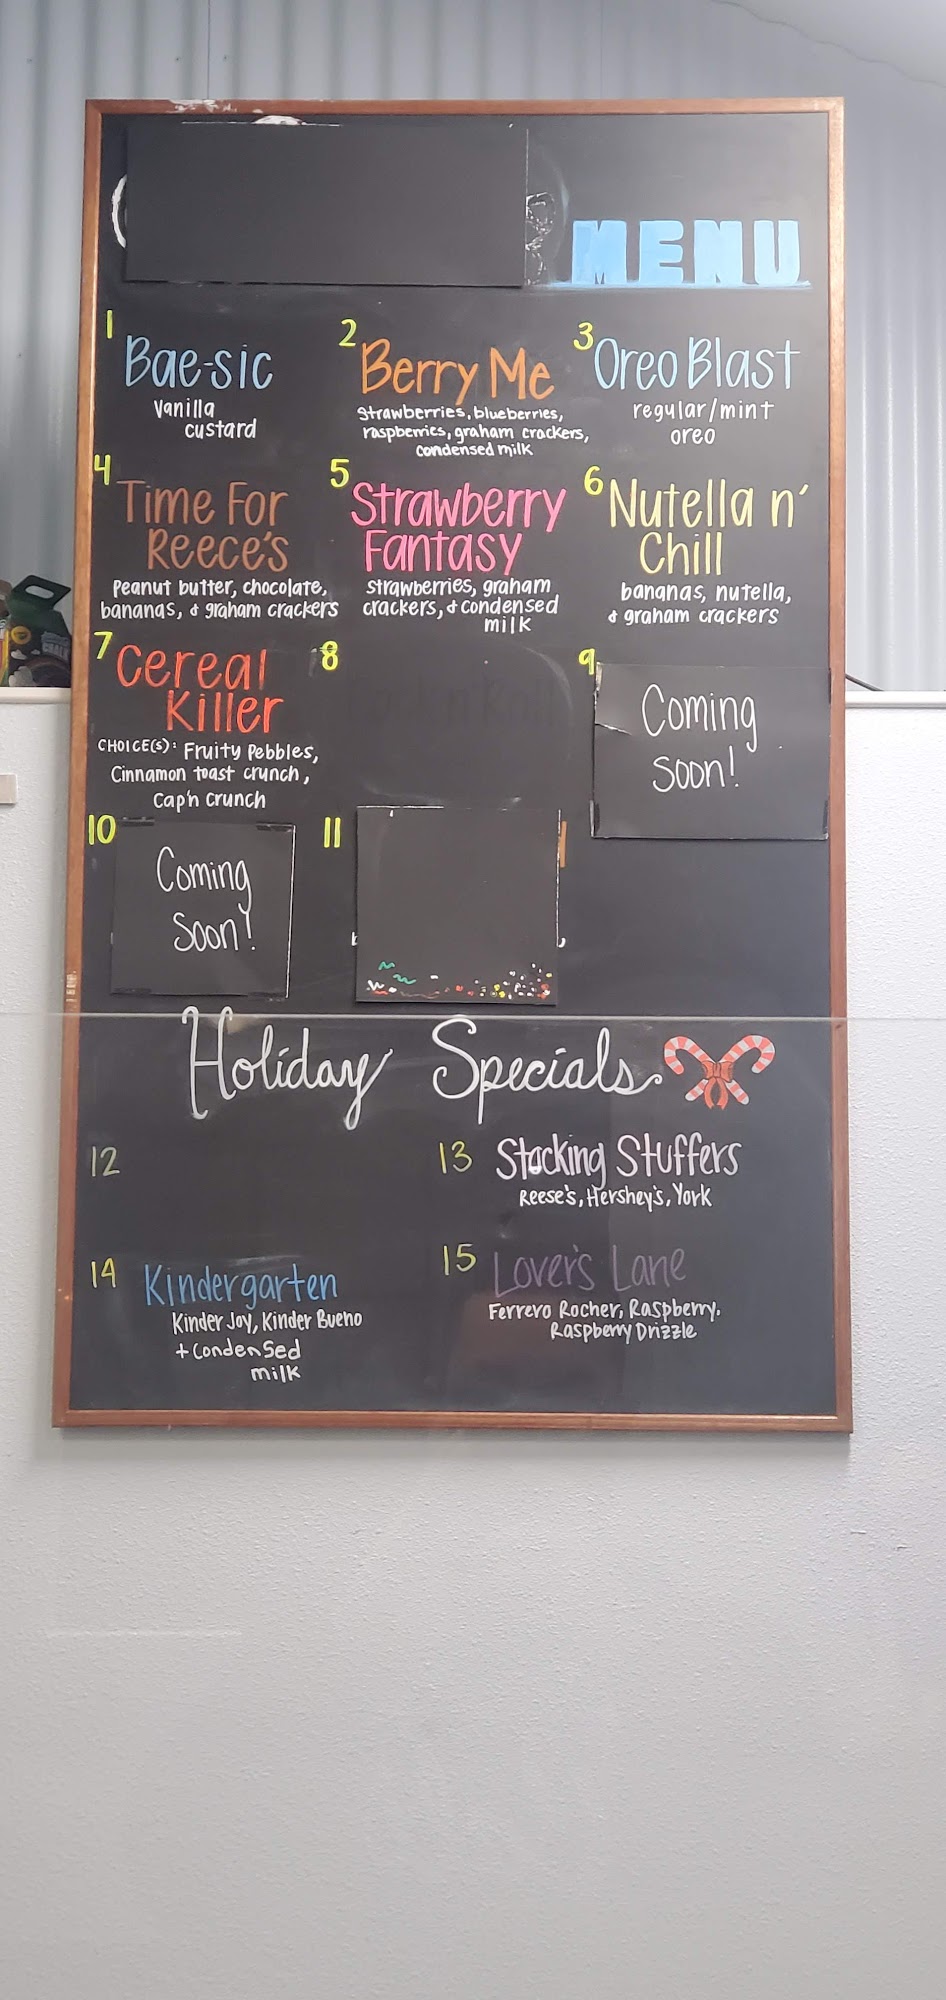 MENU
1
Bae-sic
Vanilla
custard
2
Berry Me
Strawberries, blueberries,
raspberries, graham crackers,
condensed milk
3
Oreo Blast
regular/mint
oreo
4
Time For
Reece's
Peanut butter, chocolate,
bananas, & graham crackers
5
Strawberry
Fantasy
strawberries, graham
crackers, & condensed
milk
6
Nutella n'
Chill
bananas, nutella,
& graham crackers
7
Cereal
Killer
CHOICE(S): Fruity Pebbles,
Cinnamon toast crunch,
Cap'n crunch
8
9
Coming
Soon!
10
Coming
Soon!
11
Holiday Specials
12
13
Stocking Stuffers
Reese's, Hershey's, York
14
Kindergarten
Kinder Joy, Kinder Bueno
+ Condensed
milk
15
Lover's Lane
Ferrero Rocher, Raspberry.
Raspberry Drizzle